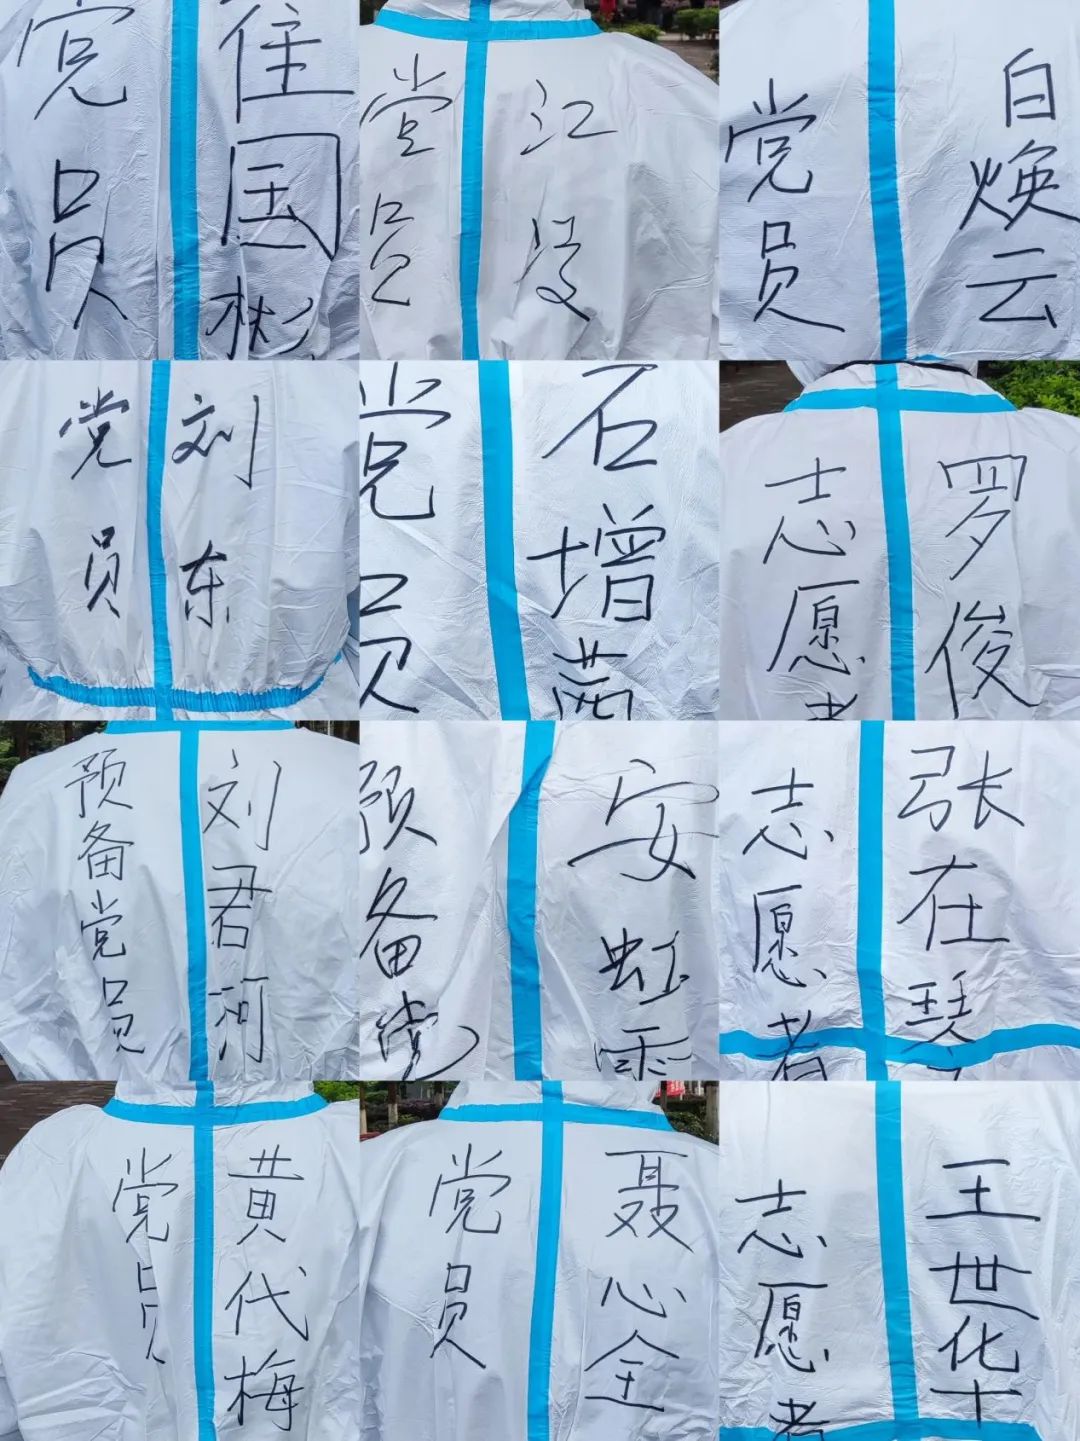 党员
国彬
党员
江
党员
白焕云
党员
刘东
党员
石增茜
志愿者
罗俊
预备党员
刘君河
预备党
安虹霏
志愿者
张在琴
党员
黄代梅
党员
聂心全
志愿者
王世华